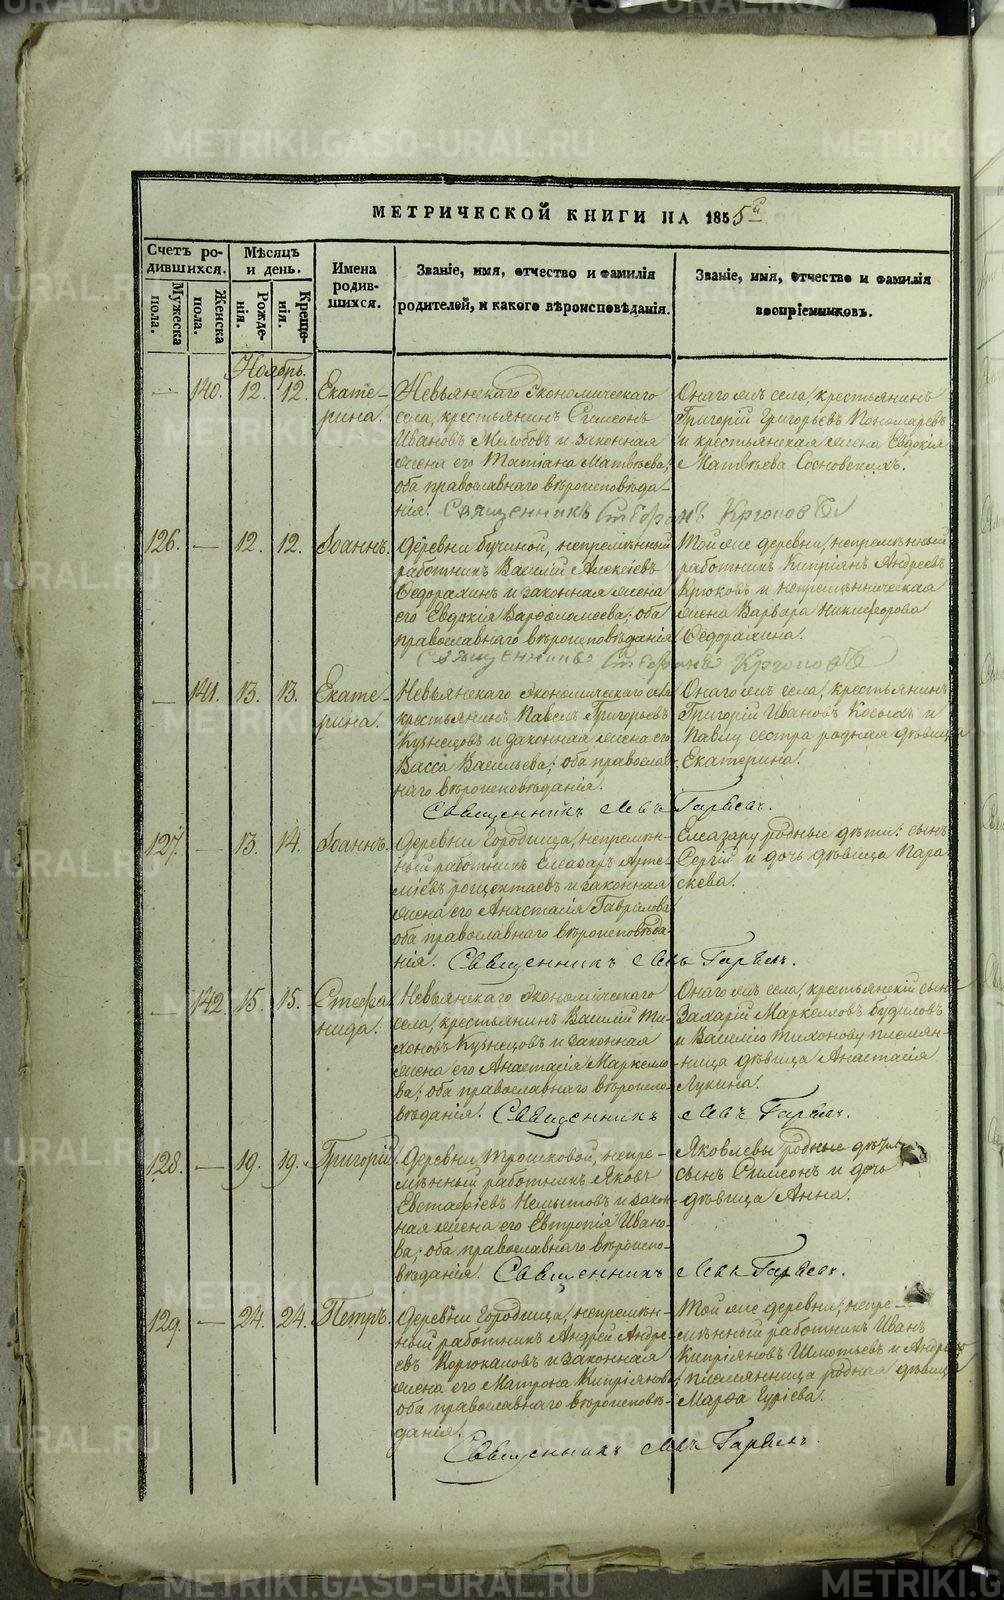 МЕТРИЧЕСКОЙ КНИГИ НА 1855й
Счетъ ро-
дившихся.
Мужеска
пола.
Женска
пола.
Мѣсяцъ
и день.
Рожде-
нія.
Креще-
нія.
Имена
родив-
шихся.
Званіе, имя, отчество и фамилія
родителей, и какого вѣроисповѣданія.
Званіе, имя, отчество и фамилія
воспріемниковъ.
Ноябрь.
— 140. 12. 12. Екате-
рина.
Невьянскаго Экономическаго
села, крестьянинъ Симеонъ
Ивановъ и законная
жена его Татіана Матвѣева;
оба православнаго вѣроисповѣда-
нія. Священникъ Стефанъ
Онаго жъ села, крестьянинъ
Григорій Григорьевъ Пономаревъ
и крестьянская жена Евдокія
Матвѣева Сосновскихъ.
126. — 12. 12. Іоаннъ.
Деревни Бучиной, непремѣнный
работникъ Василій Алексѣевъ
Ѳедорахинъ и законная жена
его Евдокія Варѳоломеева; оба
православнаго вѣроисповѣданія
Священникъ Стефанъ
Той же деревни, непремѣнный
работникъ Кипріянъ Андреевъ
Крюковъ и непремѣнническая
жена Варвара Никифорова
Ѳедорахина.
— 141. 13. 13. Екате-
рина.
Невьянскаго Экономическаго села
крестьянинъ Павелъ Григорьевъ
Кузнецовъ и законная жена его
Васса Васильева; оба православ-
наго вѣроисповѣданія.
Священникъ Левъ Гаряевъ.
Онаго жъ села, крестьянинъ
Григорій Ивановъ Косыхъ и
Павлу сестра родная дѣвица
Екатерина.
127. — 13. 14. Іоаннъ.
Деревни Городища, непремѣн-
ный работникъ Елеазаръ Арте-
міевъ и законная
жена его Анастасія Гаврилова
оба православнаго вѣроисповѣда-
нія. Священникъ Левъ Гаряевъ.
Елеазару родные дѣти: сынъ
Сергій и дочь дѣвица Пара-
скева.
— 142. 15. 15. Стефа-
нида.
Невьянскаго Экономическаго
села, крестьянинъ Василій Ти-
хоновъ Кузнецовъ и законная
жена его Анастасія Маркело-
ва; оба православнаго вѣроиспо-
вѣданія. Священникъ Левъ Гаряевъ.
Онаго жъ села, крестьянскій сынъ
Захарій Маркеловъ Будиловъ
и Василію Тихонову племян-
ница дѣвица Анастасія
Лукина.
128. — 19. 19. Григорій
Деревни Трошковой, непре-
мѣнный работникъ Яковъ
Евстафіевъ Немытовъ и закон-
ная жена его Евтропія Ивано-
ва; оба православнаго вѣроиспо-
вѣданія. Священникъ Левъ Гаряевъ.
Яковлевы родные дѣти
сынъ Симеонъ и дочь
дѣвица Анна.
129. — 24. 24. Петръ.
Деревни Городища, непремѣн-
ной работникъ Андрей Андре-
евъ Корюкаловъ и законная
жена его Матрона Кипріянова
оба православнаго вѣроисповѣ-
данія.
Священникъ Левъ Гаряевъ.
Той же деревни, непре-
мѣнной работникъ Иванъ
Кипріяновъ Шмотьевъ и Андрею
племянница родная дѣвица
Марѳа Гуріева.
METRIKI.GASO-URAL.RU